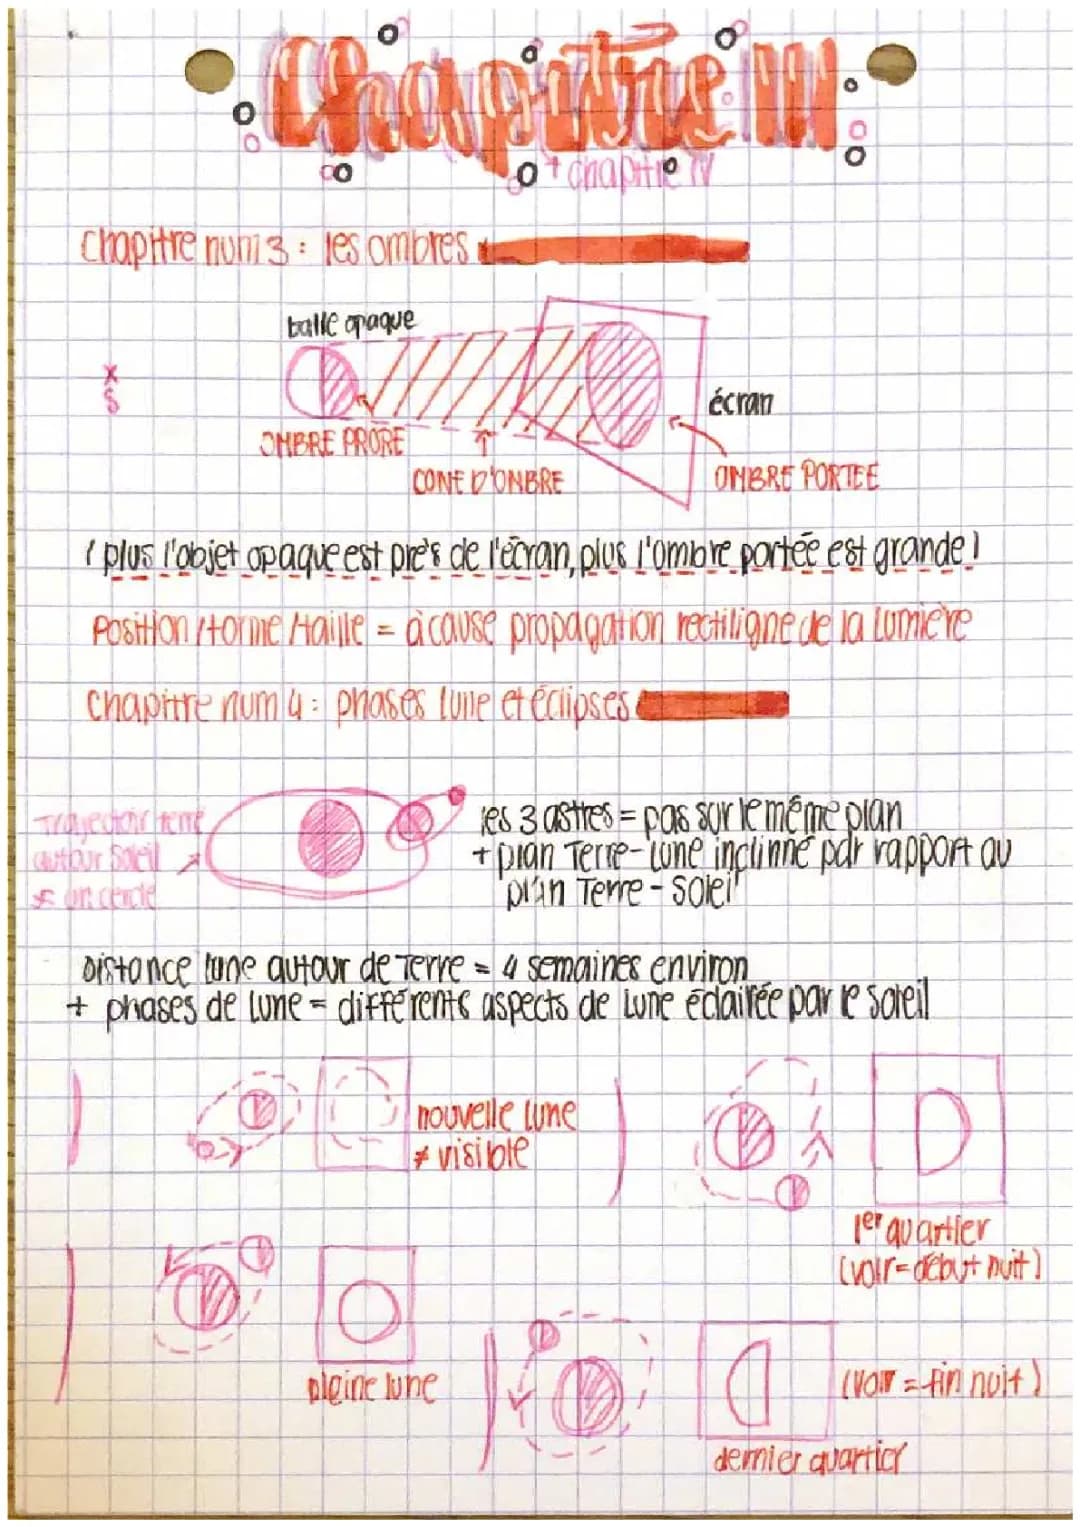 Chapitre III
+ chapitre IV
Chapitre num 3 : les ombres
balle opaque
x
S
écran
OMBRE PRORE
CONE D'OMBRE
OMBRE PORTEE
! plus l'objet opaque est près de l'écran, plus l'ombre portée est grande !
Position / forme / taille = à cause propagation rectiligne de la lumière
Chapitre num 4 : phases lune et éclipses
Trajectoir terre
autour Soleil
≠ un cercle
les 3 astres = pas sur le même plan
+ plan Terre-Lune inclinné par rapport au
plan Terre - Soleil
Distance lune autour de Terre = 4 semaines environ
+ phases de Lune = différents aspects de Lune éclairée par le soleil
nouvelle lune
≠ visible
1er quartier
(voir = début nuit)
pleine lune
(voir = fin nuit)
dernier quartier